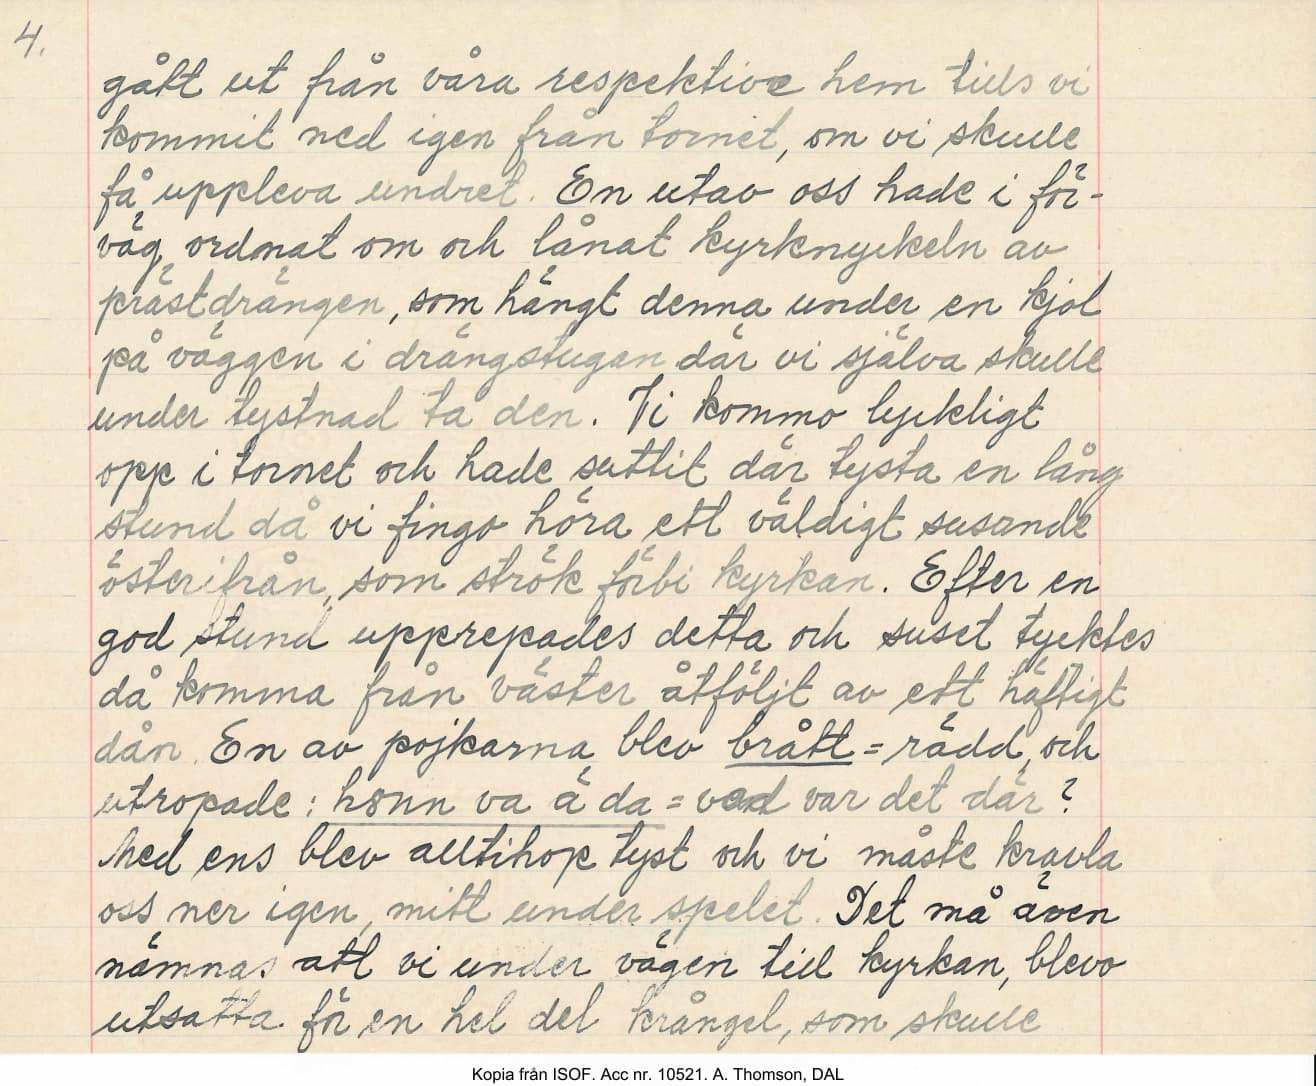 4.
gått ut från våra respektive hem tills vi
kommit ned igen från tornet, om vi skulle
få uppleva undret. En utav oss hade i för-
väg ordnat om och lånat kyrknyckeln av
prästdrängen, som hängt denna under en kjol
på väggen i drängstugan där vi själva skulle
under tystnad ta den. Vi kommo lyckligt
opp i tornet och hade suttit där tysta en lång
stund då vi fingo höra ett väldigt susande
österifrån, som strök förbi kyrkan. Efter en
god stund upprepades detta och suset tycktes
då komma från väster åtföljt av ett häftigt
dån. En av pojkarna blev brått = rädd, och
utropade: hsnn va ä da = vad var det där?
Med ens blev alltihop tyst och vi måste kravla
oss ner igen, mitt under spelet. Det må även
nämnas att vi under vägen till kyrkan, blevo
utsatta för en hel del krångel, som skulle
Kopia från ISOF. Acc nr. 10521. A. Thomson, DAL